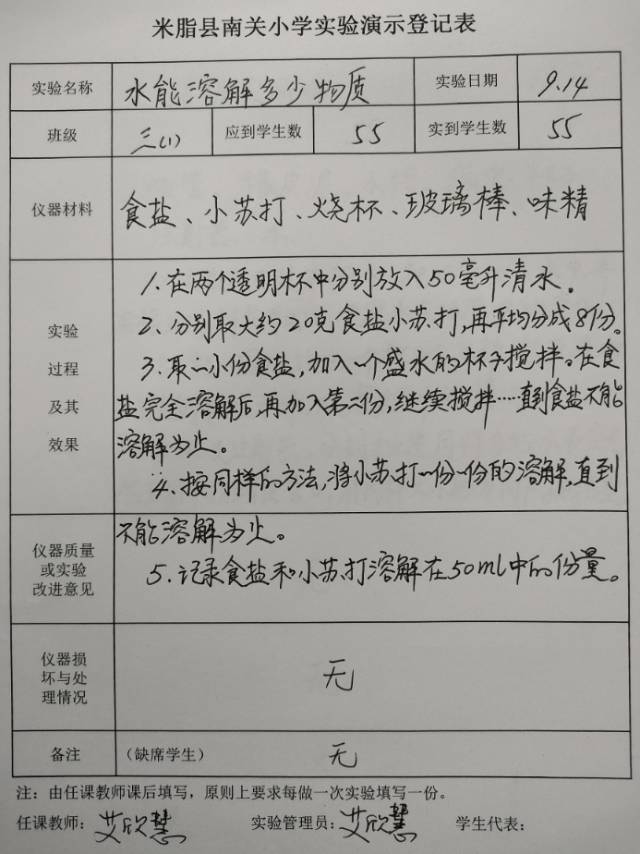 米脂县南关小学实验演示登记表
实验名称 水能溶解多少物质 实验日期 9.14
班级 三(1) 应到学生数 55 实到学生数 55
仪器材料 食盐、小苏打、烧杯、玻璃棒、味精
实验
过程
及其
效果
1、在两个透明杯中分别放入50毫升清水。
2、分别取大约20克食盐小苏打,再平均分成8份。
3、取一小份食盐,加入一个盛水的杯子搅拌。在食
盐完全溶解后,再加入第二份,继续搅拌……直到食盐不能
溶解为止。
4、按同样的方法,将小苏打一份一份的溶解,直到
不能溶解为止。
5、记录食盐和小苏打溶解在50ml中的份量。
仪器质量
或实验
改进意见
仪器损
坏与处
理情况
无
备注 (缺席学生) 无
注：由任课教师课后填写，原则上要求每做一次实验填写一份。
任课教师：艾欣慧 实验管理员：艾欣慧 学生代表：